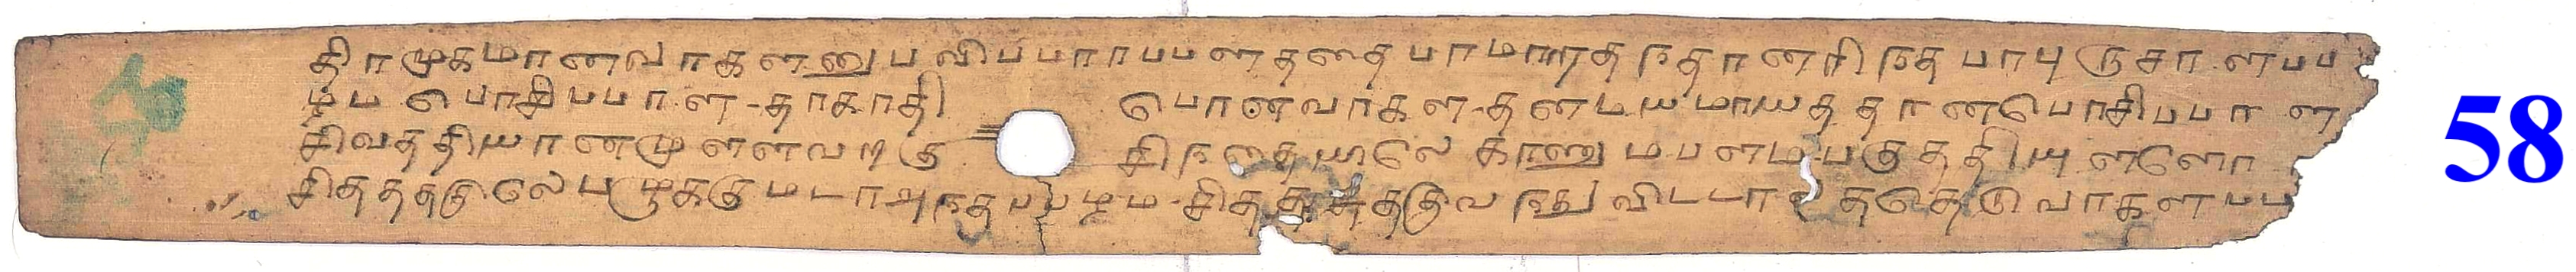 திரமுகமானவாகளனுபவிப்பாரபபளததைபாமாரதநதானறிநதபாபுருசாளபப
ழ்ப பொசிபபாள-தாகாதி பொனவாகள-தனமயமாயத தானபொசிபபா ள
சிவததியானமுளளவாகு சிநதையிலே காணு மபளமபகுததியுளளோ
சிததததுலேபழுககுமடாஅநதபபழம-சிதத ததுவநதுவிடடால தததெடுவாகளபப
58